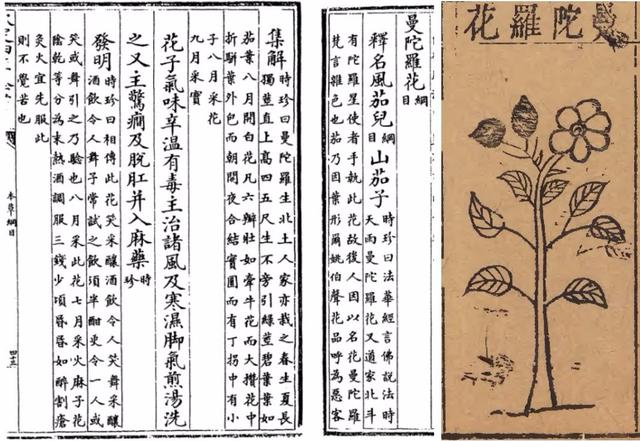 曼陀羅花
曼陀羅花 綱目
釋名風茄兒 綱目 山茄子 時珍曰法華經言佛說法時
天雨曼陀羅花又道家北斗
有陀羅星使者手執此花故後人因以名花曼陀羅
梵言雜色也茄乃因葉形爾姚伯聲花品呼為惡客
集解 時珍曰曼陀羅生北土人家亦栽之春生夏長
獨莖直上高四五尺生不旁引綠莖碧葉葉如
茄葉八月開白花凡六瓣壯如牽牛花而大攢花中
折駢葉外包而朝開夜合結實圓而有丁拐中有小
子八月采花
九月采實
花子氣味辛溫有毒主治諸風及寒濕脚氣煎湯洗
之又主驚癇及脫肛并入麻藥 時珍
發明 時珍曰相傳此花笑采釀酒飲令人笑舞采釀
酒飲令人舞予常試之飲須半酣更令一人或
笑或舞引之乃驗也八月采此花七月采火麻子花
陰乾等分為末熱酒調服三錢少頃昬昬如醉割瘡
灸火宜先服此
則不覺苦也
本草綱目
四三